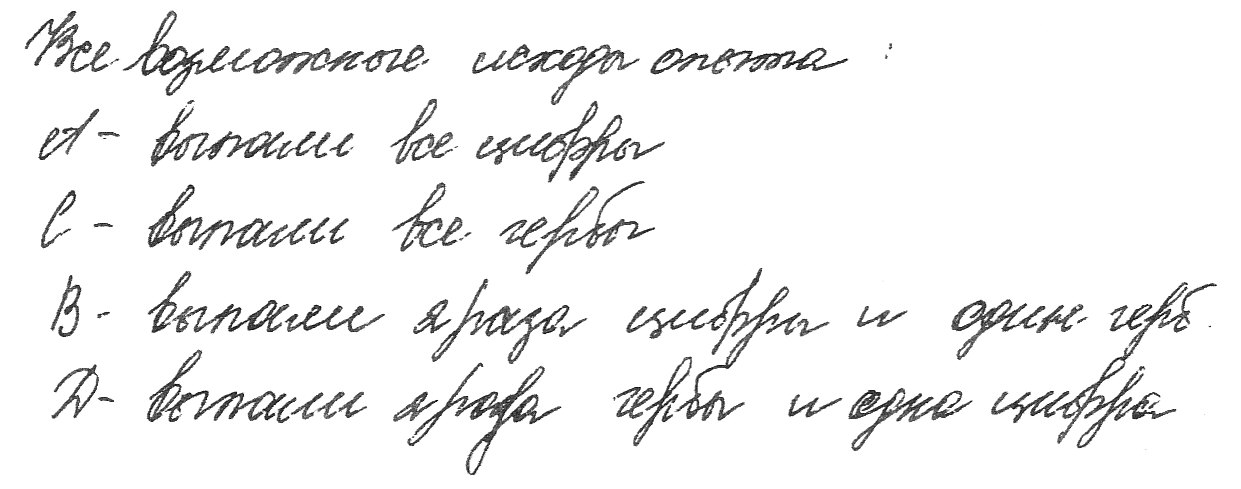 Все возможные исходы опыта :
А - выпали все цифры
С - выпали все гербы
В - выпали 2 раза цифры и один герб.
Д - выпали 2 раза гербы и одна цифра